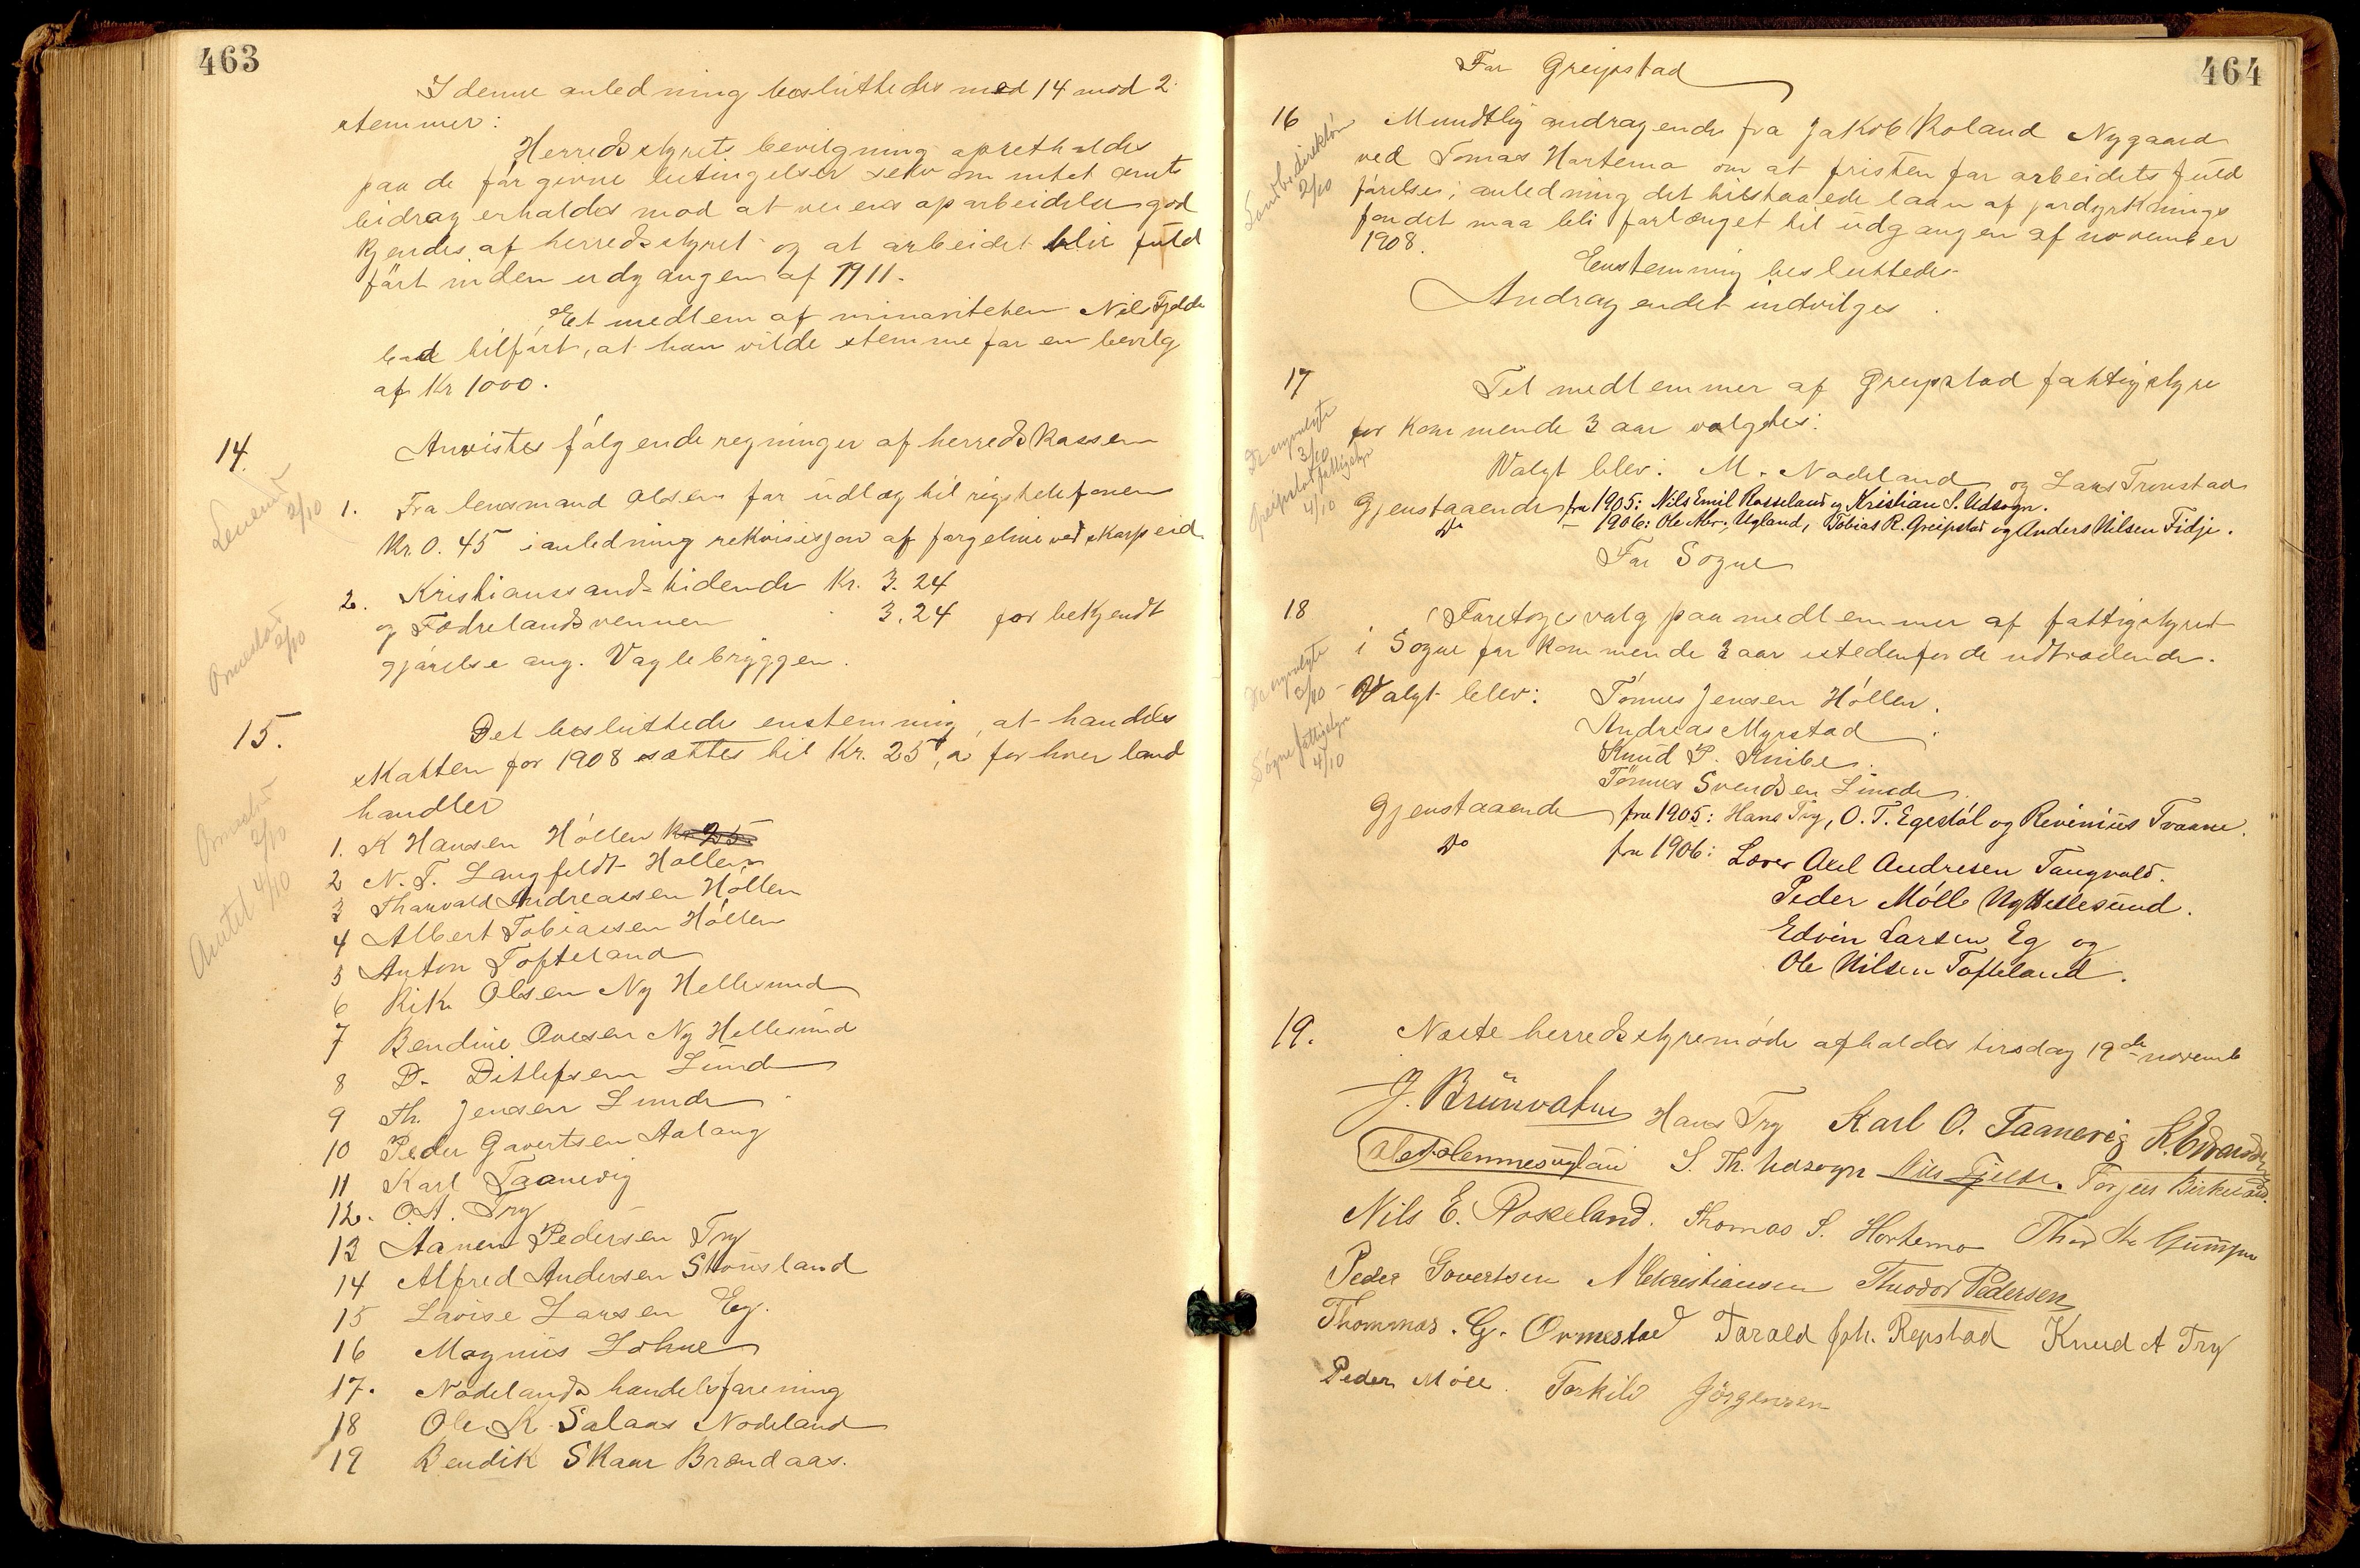 463
I denne anledning besluttedes med 14 mod 2
stemmer:
Herredsstyrets bevilgning opretholdes
paa de før givne betingelser selv om intet amts
bidrag erholdes mod at veiens oparbeidelse god
kjendes af herredsstyret og at arbeidet blir fuld
ført inden udgangen af 1911.
Et medlem af minoriteten Nils Fjelde
bad tilført, at han vilde stemme for en bevilg
af Kr 1000.
14. Anvistes følgende regninger af herredskassen
Lensmd 2/10
1. Fra lensmand Olsen for udlæg til rigstelefonen
Kr. 0.45 i anledning rekvisisjon af færgeline ved Skarpeid
2. Kristianssands tidende Kr. 3.24
og Fædrelandsvennen 3.24 for bekjendt
Ormestad 2/10
gjørelse ang. Vaglebryggen.
15. Det besluttedes enstemmig, at handels
skatten for 1908 sættes til Kr. 25, a for hver land
handler
Ormestad 2/10
Amtet 4/10
1. K Hansen Høllen Kr 25
2 N. T. Langfeldt Høllen
3 Thorvald Andreassen Høllen
4 Albert Tobiassen Høllen
5 Anton Tofteland
6 Rik. Olsen Ny Hellesund
7 Bendine Ovesen Ny Hellesund
8 D. Ditlefsen Lunde
9 Th. Jensen Lunde
10 Peder Govertsen Aalang
11 Karl Taanevig
12. O. A. Try
13 Aanen Pedersen Try
14 Alfred Andersen Stousland
15 Lovise Larsen Eg.
16 Magnus Lohne
17. Nodelands handelsforening
18 Ole K. Salaas Nodeland
19 Bendik Skaar Brændaas.
464
For Greipstad
16 Mundtlig andragende fra Jakob Roland Nygaard
Landbr.direktør 2/10
ved Tomas Hortemo om at fristen for arbeidets fuld
førelse i anledning det tilstaaede laan af jorddyrknings
fondet maa bli forlænget til udgangen af november
1908.
Enstemmig besluttedes
Andragendet indvilges.
17 Til medlemmer af Greipstad fattigstyre
for kommende 3 aar valgtes:
De nyvalgte 3/10
Greipstad fattigstyre 4/10
Valgt blev: M. Nodeland og Lars Tronstad
Gjenstaaende fra 1905: Nils Emil Rosseland og Kristian S. Udsogn.
Do - 1906: Ole Mbr. Ugland, Tobias R. Greipstad og Anders Nilsen Fidje.
For Sogne
18 Foretoges valg paa medlemmer af fattigstyret
i Sogne for kommende 3 aar istedenfor de udtrædende.
De nyvalgte 3/10
Søgne fattigstyre 4/10
Valgt blev: Tønnes Jensen Høllen.
Andreas Myrstad.
Knud P. Knibe.
Tønnes Svendsen Lunde.
Gjenstaaende fra 1905: Hans Try, O. T. Egestøl og Revinius Tvaane.
Do fra 1906: Lærer Axel Andresen Tangvald.
Peder Mølle Ny Hellesund.
Edvin Larsen Eg og
Ole Nilsen Tofteland.
19. Næste herredsstyremøde afholdes tirsdag 19de novemb
J. Brunvatne Hans Try Karl O. Taanevig
S. Th. Udsogn Nils Fjelde. Torjus Birkeland.
Nils E. Rosseland. Thomas S. Hortemo
Peder Govertsen N Christiansen Theodor Pedersen
Thommas. G. Ormestad Tarald Joh. Repstad Knud A Try
Peder Møll. Torkild Jørgensen